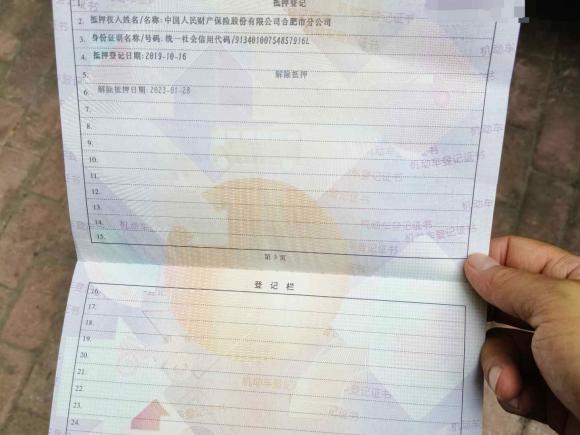 1. 抵押登记
2. 抵押权人姓名/名称:中国人民财产保险股份有限公司合肥市分公司
3. 身份证明名称/号码:统一社会信用代码/91340100754857916L
4. 抵押登记日期:2019-10-16
5. 解除抵押
6. 解除抵押日期:2023-01-28
7.
8.
9.
10.
11.
12.
13.
14.
15.
第 3 页
登 记 栏
16.
17.
18.
19.
20.
21.
22.
23.
24.
机动车登记证书
机动车登记证书
机动车登记证书
机动车登记证书